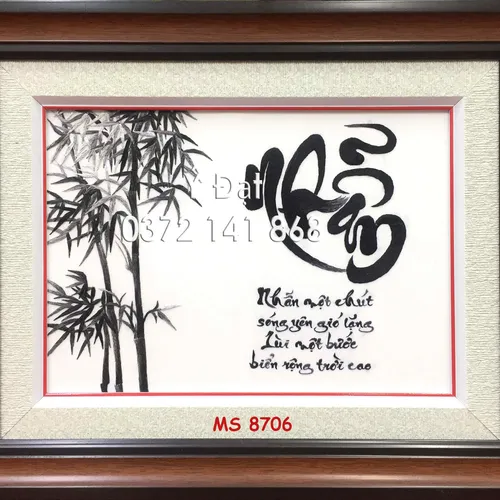 Nhẫn
Đạt
0372 141 868
Nhẫn một chút
sóng yên gió lặng
Lùi một bước
biển rộng trời cao
MS 8706